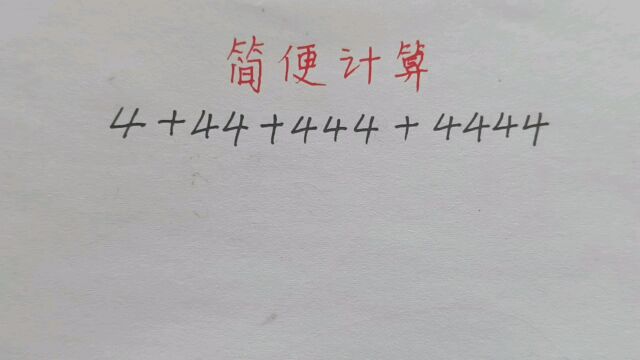 简便计算
4+44+444+4444